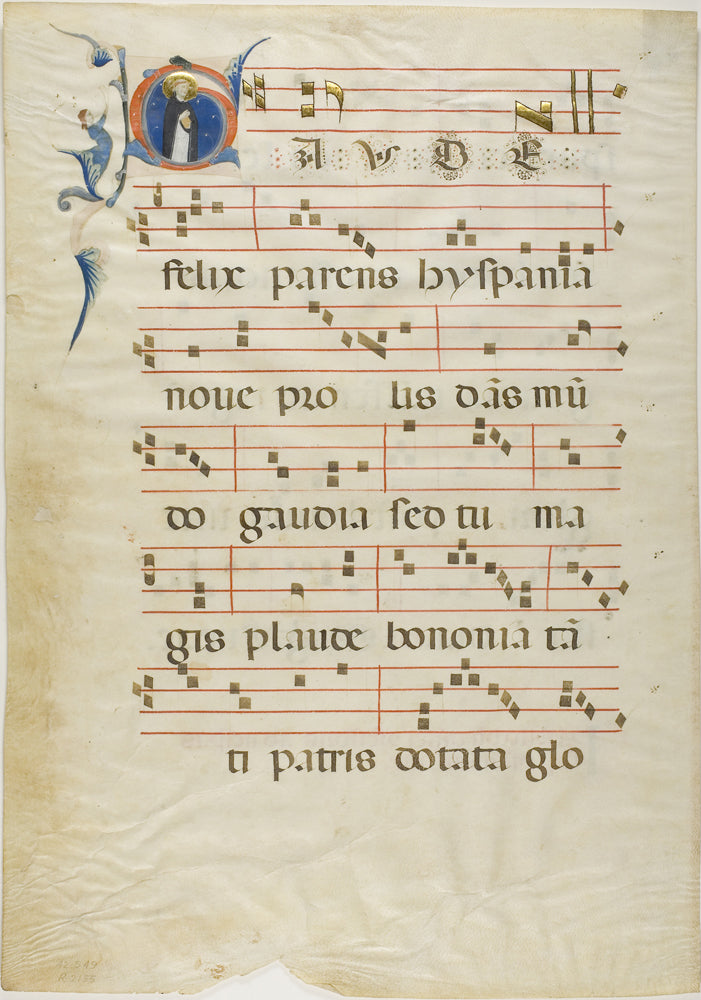 GAVDE
felix parens hyſpania
noue pro lis dās mū
do gaudia ſed tu ma
gis plaude bononia tā
ti patris dotata glo
R2155